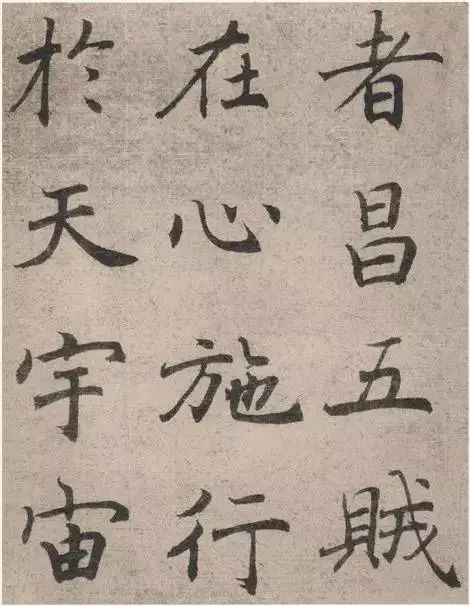 者昌五賊
在心施行
於天宇宙